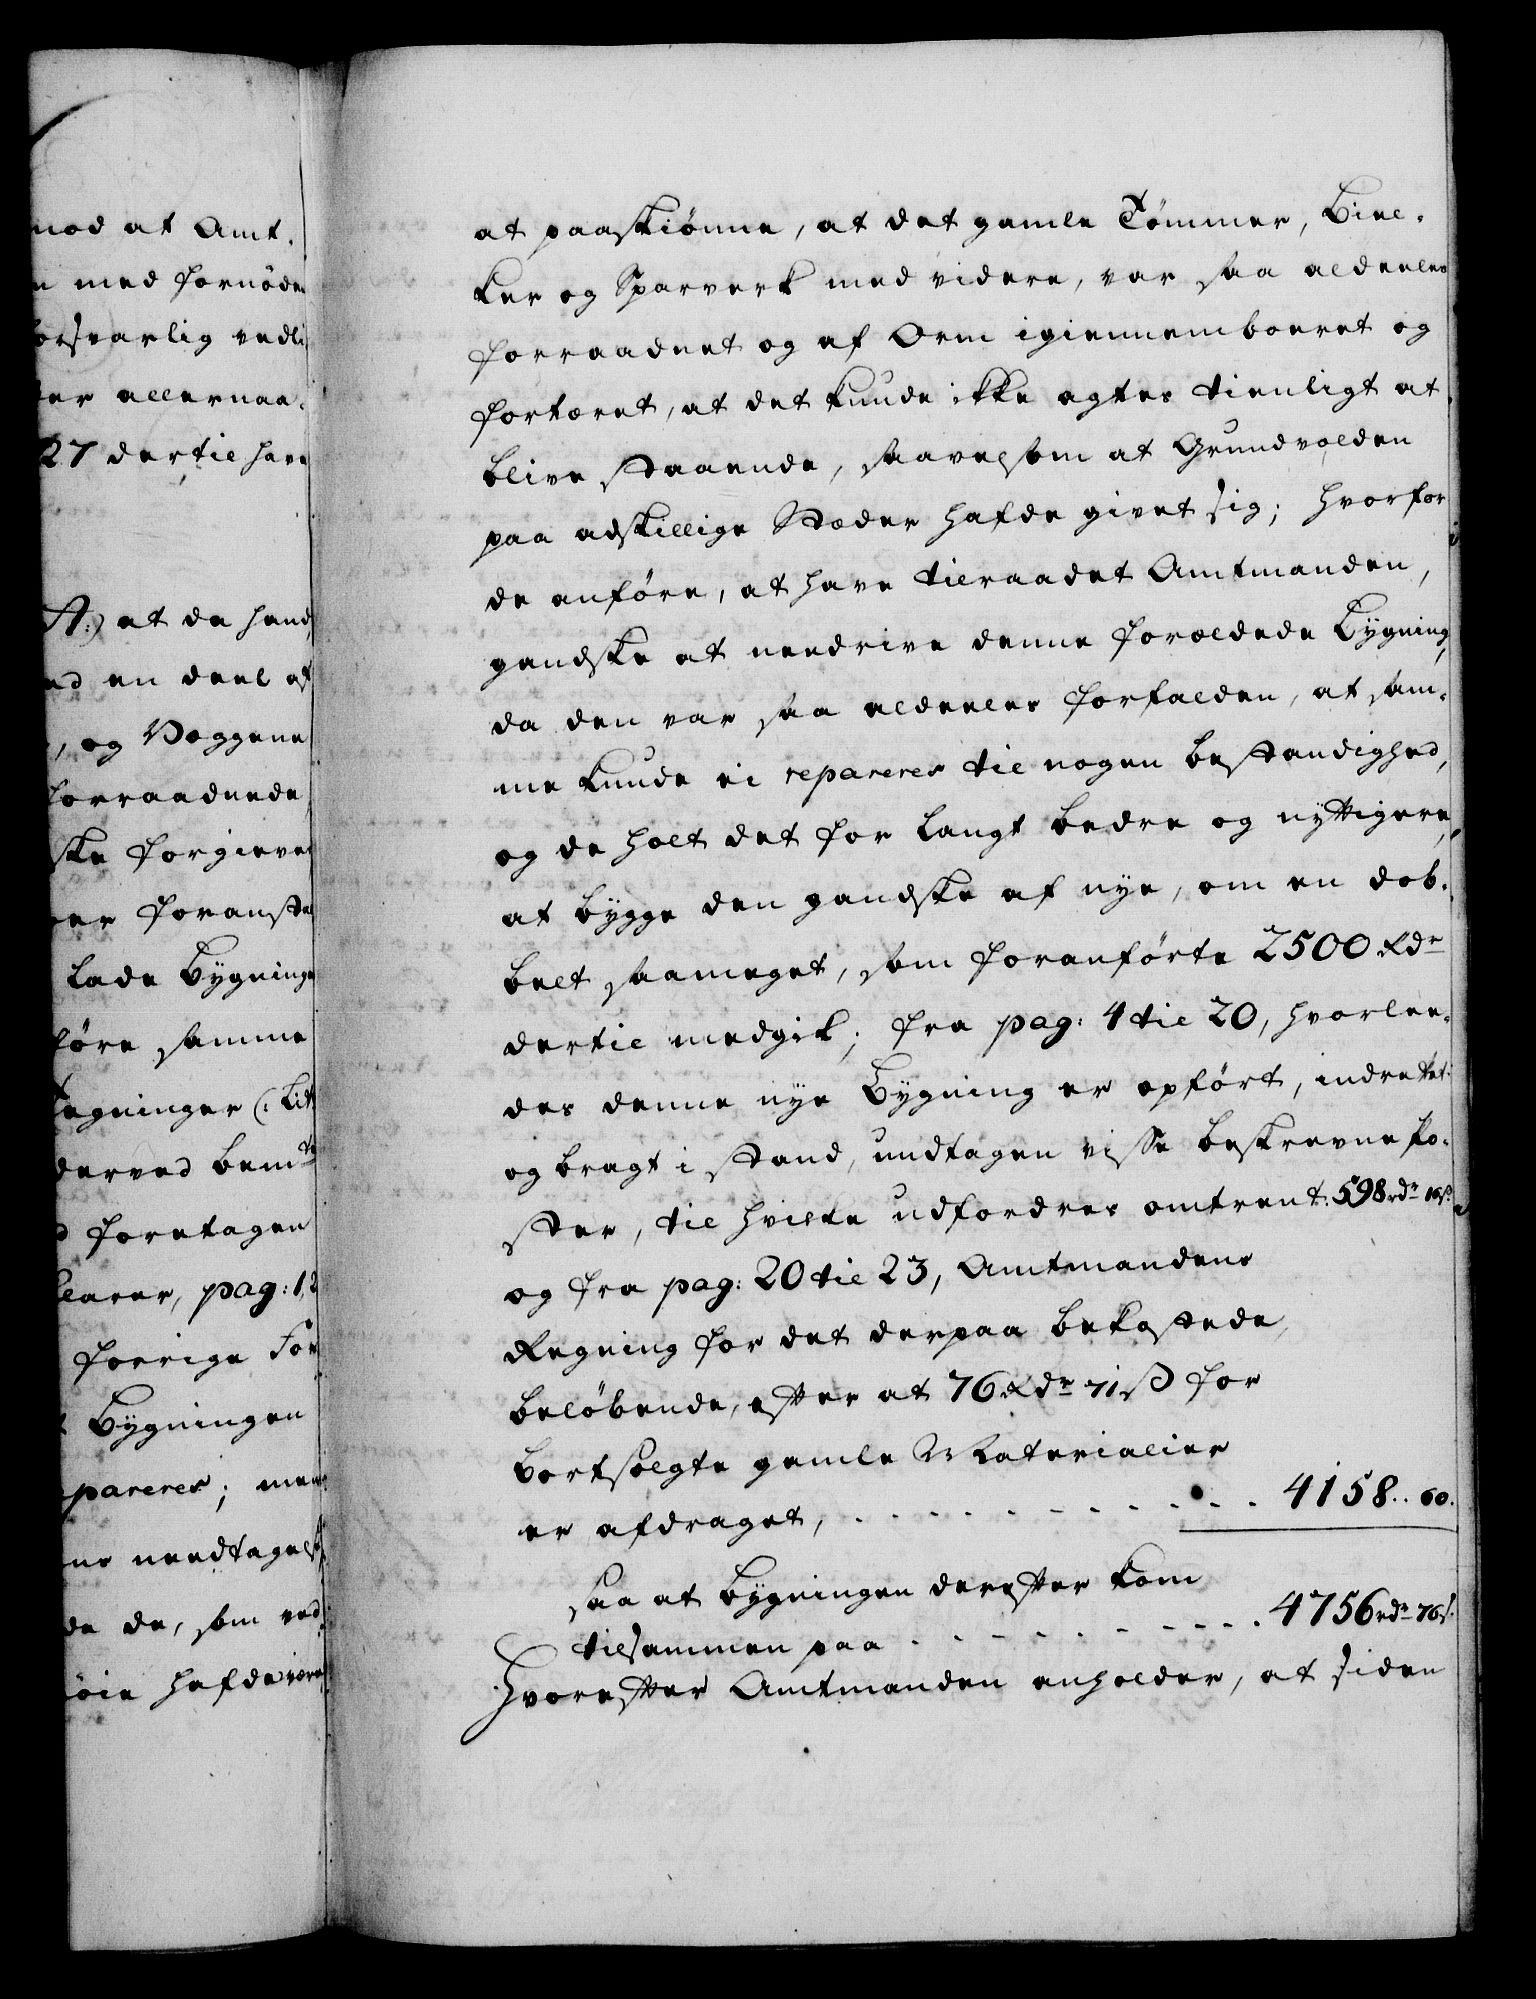 mod at Amt¬
med fornöden
forsvarlig vedli
allernaa¬
27 dertil have
A:) at de
en deel af
, og Væggene
forraadnede
forgieves
foranstal
lade Bygninge
samme
egninger (: Lit
derved bemte
foretagen
pag: 1, 2
forrige For
Bygningen
pareres; men
needtagels
de de, som ved
hafde være
at paaskiönne, at det gamle Tömmer, Biel¬
ker og Sparverk med videre, var saa aldeeles
forraadnet og af Orm igiennemboeret og
fortæret, at det kunde ikke agtes tienligt at
blive staaende, saavelsom at Grundvolden
paa adskillige Stæder hafde givet sig; hvorfor
de anföre, at have tilraadet Amtmanden,
gandske at needrive denne forældede Bygning,
da den var saa aldeeles forfalden, at sam¬
me kunde ei repareres til nogen bestandighed,
og de holt det for langt bedre og nyttigere,
at bygge den gandske af nye, om en dob¬
belt saameget, som foranförte 2500 Rdr
dertil medgik; fra pag: 4 til 20, hvorlee¬
des denne nye Bygning er opfört, indrettet
og bragt i stand, undtagen visse beskrevne Po¬
ster, til hvilke udfordres omtrent. 598 rdr 16 s.
og fra pag: 20 til 23, Amtmandens
Regning for det derpaa bekostede,
belöbende, efter at 76 Rdr 71 ß for
bortsolgte gamle Materialier
er afdraget, . . . . . . . . . . . 4158.. 60.
saa at bygningen derefter kom
tilsammen paa . . . . . . . . . 4756 rdr 76 s.
Hvorefter Amtmanden anholder, at siden